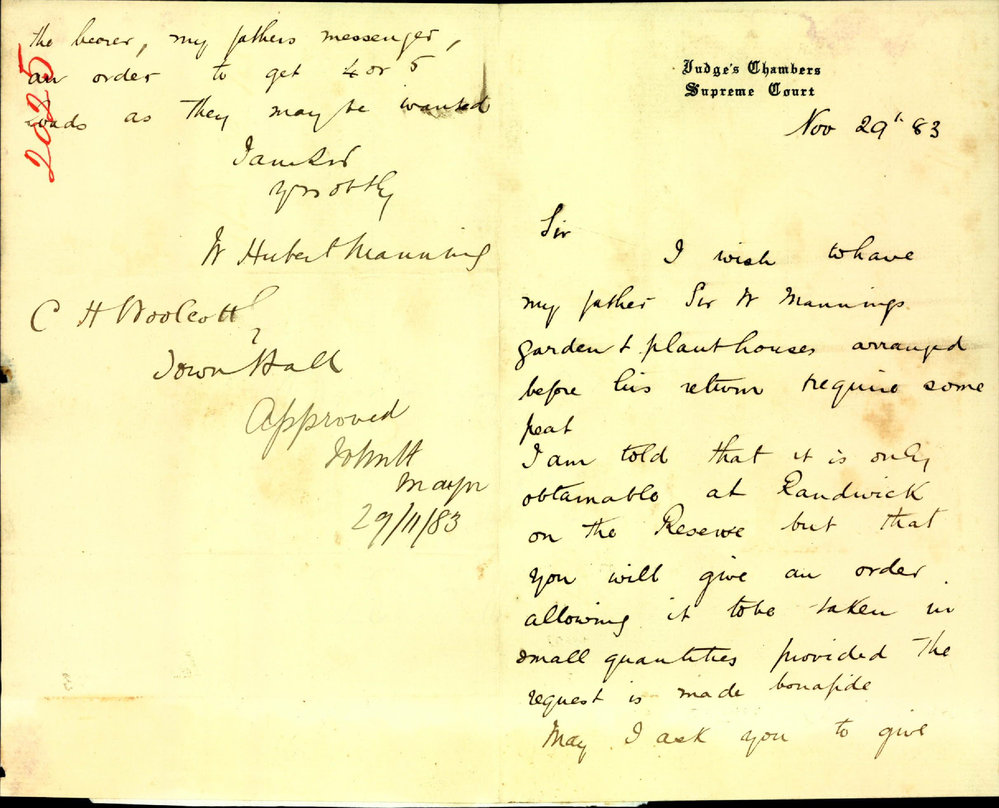 Judge's Chambers
Supreme Court
Nov 29th 83
Sir
I wish to have
my father Sir W Mannings
garden & plant houses arranged
before his return & require some
peat
I am told that it is only
obtainable at Randwick
on the Reserve but that
you will give an order
allowing it to be taken in
small quantities provided the
request is made bonafide
May I ask you to give
the bearer, my fathers messenger,
an order to get 4 or 5
loads as they may be wanted
I am Sir
Yrs obtly
W Hubert Manning
C H Woolcott
Town Hall
Approved
John H
Mayor
29/11/83
2025